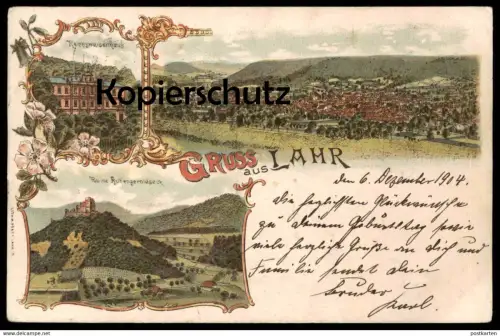 LAHR
Reichswaisenhaus
Kopierschutz
GRUSS aus LAHR
Ruine Hohengeroldseck
den 6. Dezember 1904.
Die herzlichsten Glückwünsche
zu Deinem Geburtstag sowie
viele herzliche Grüße an Dich und
Familie sendet Dein
Bruder
Karl.
postkarten